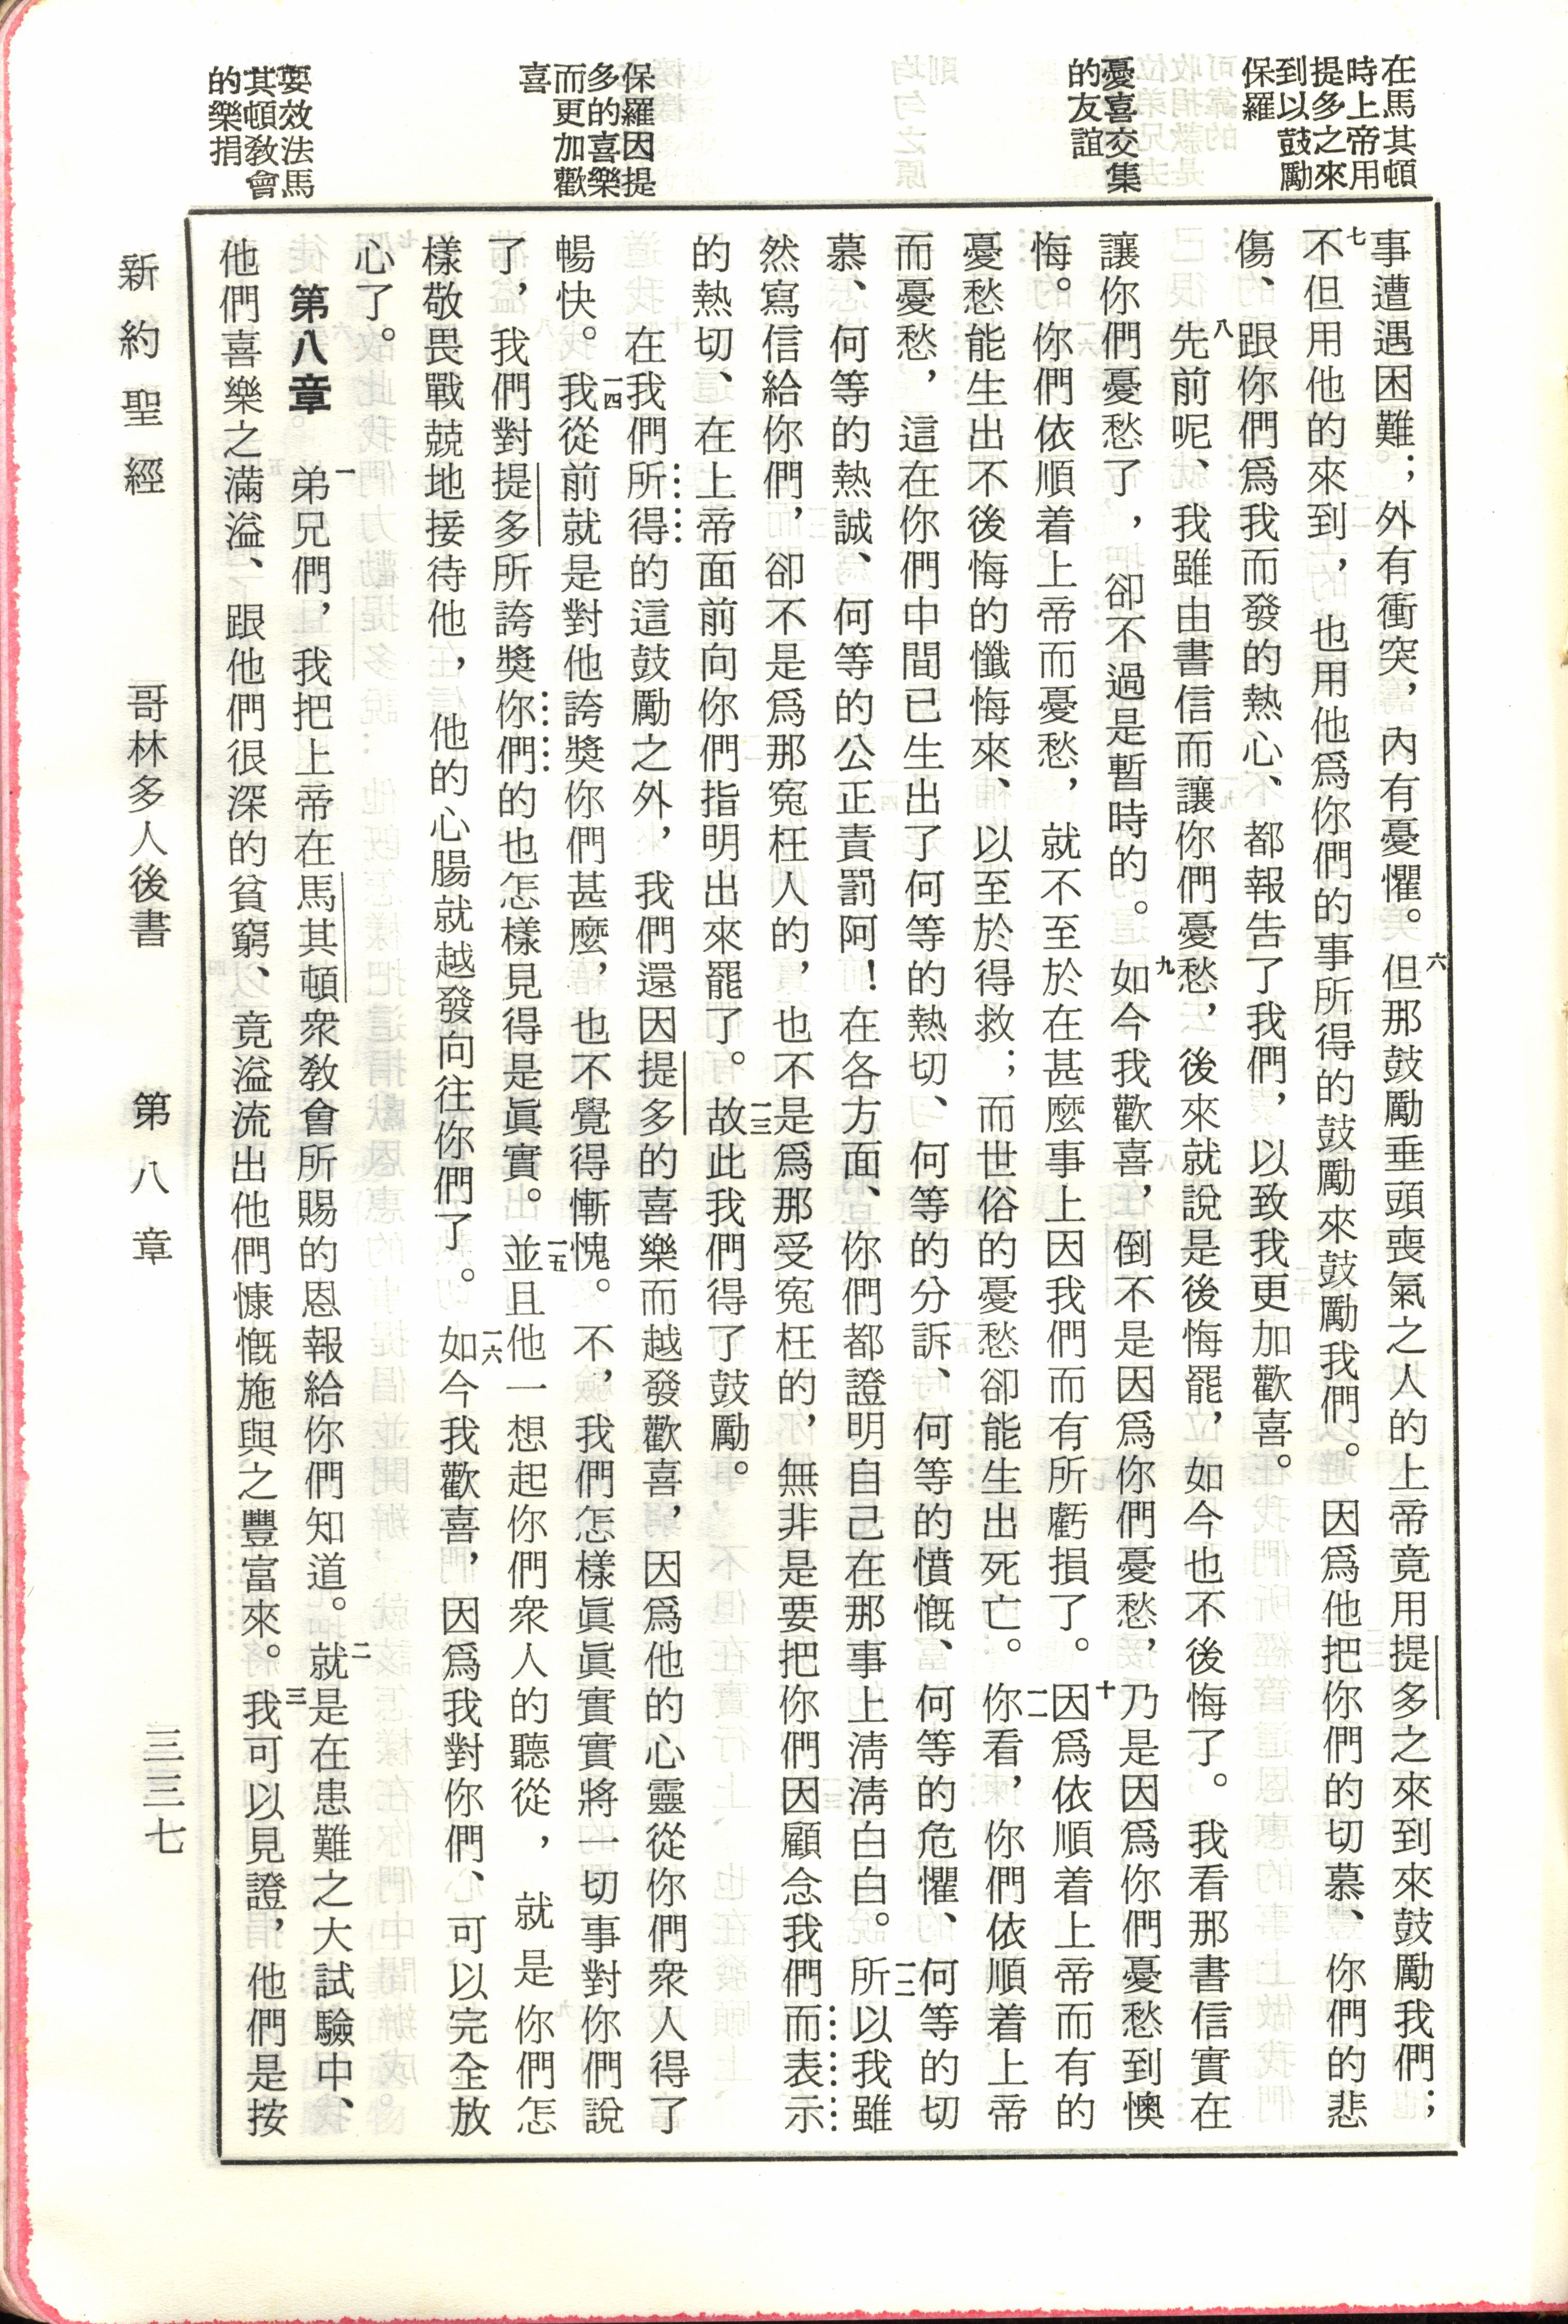 在馬其頓
時上帝用
提多之來
到以鼓勵
保羅
憂喜交集
的友誼
保羅因提
多的喜樂
而更加歡
喜
要效法馬
其頓敎會
的樂捐
事遭遇困難；外有衝突，內有憂懼。六但那鼓勵垂頭喪氣之人的上帝竟用提多之來到來鼓勵我們；
七不但用他的來到，也用他爲你們的事所得的鼓勵來鼓勵我們。因爲他把你們的切慕、你們的悲
傷、跟你們爲我而發的熱心、都報告了我們，以致我更加歡喜。
八先前呢、我雖由書信而讓你們憂愁，後來就說是後悔罷，如今也不後悔了。我看那書信實在
讓你們憂愁了，卻不過是暫時的。九如今我歡喜，倒不是因爲你們憂愁，乃是因爲你們憂愁到懊
悔。你們依順着上帝而憂愁，就不至於在甚麼事上因我們而有所虧損了。十因爲依順着上帝而有的
憂愁能生出不後悔的懺悔來、以至於得救；而世俗的憂愁卻能生出死亡。一一你看，你們依順着上帝
而憂愁，這在你們中間已生出了何等的熱切、何等的分訴、何等的憤慨、何等的危懼、何等的切
慕、何等的熱誠、何等的公正責罰阿！在各方面、你們都證明自己在那事上淸淸白白。一二所以我雖
然寫信給你們，卻不是爲那寃枉人的，也不是爲那受寃枉的，無非是要把你們因顧念我們而表示
的熱切、在上帝面前向你們指明出來罷了。一三故此我們得了鼓勵。
在我們所得的這鼓勵之外，我們還因提多的喜樂而越發歡喜，因爲他的心靈從你們衆人得了
暢快。一四我從前就是對他誇獎你們甚麼，也不覺得慚愧。不，我們怎樣眞眞實實將一切事對你們說
了，我們對提多所誇獎你們的也怎樣見得是眞實。一五並且他一想起你們衆人的聽從，就是你們怎
樣敬畏戰兢地接待他，他的心腸就越發向往你們了。一六如今我歡喜，因爲我對你們、可以完全放
心了。
第八章 一弟兄們，我把上帝在馬其頓衆敎會所賜的恩報給你們知道。二就是在患難之大試驗中、
他們喜樂之滿溢、跟他們很深的貧窮、竟溢流出他們慷慨施與之豐富來。三我可以見證，他們是按
新約聖經 哥林多人後書 第八章 三三七